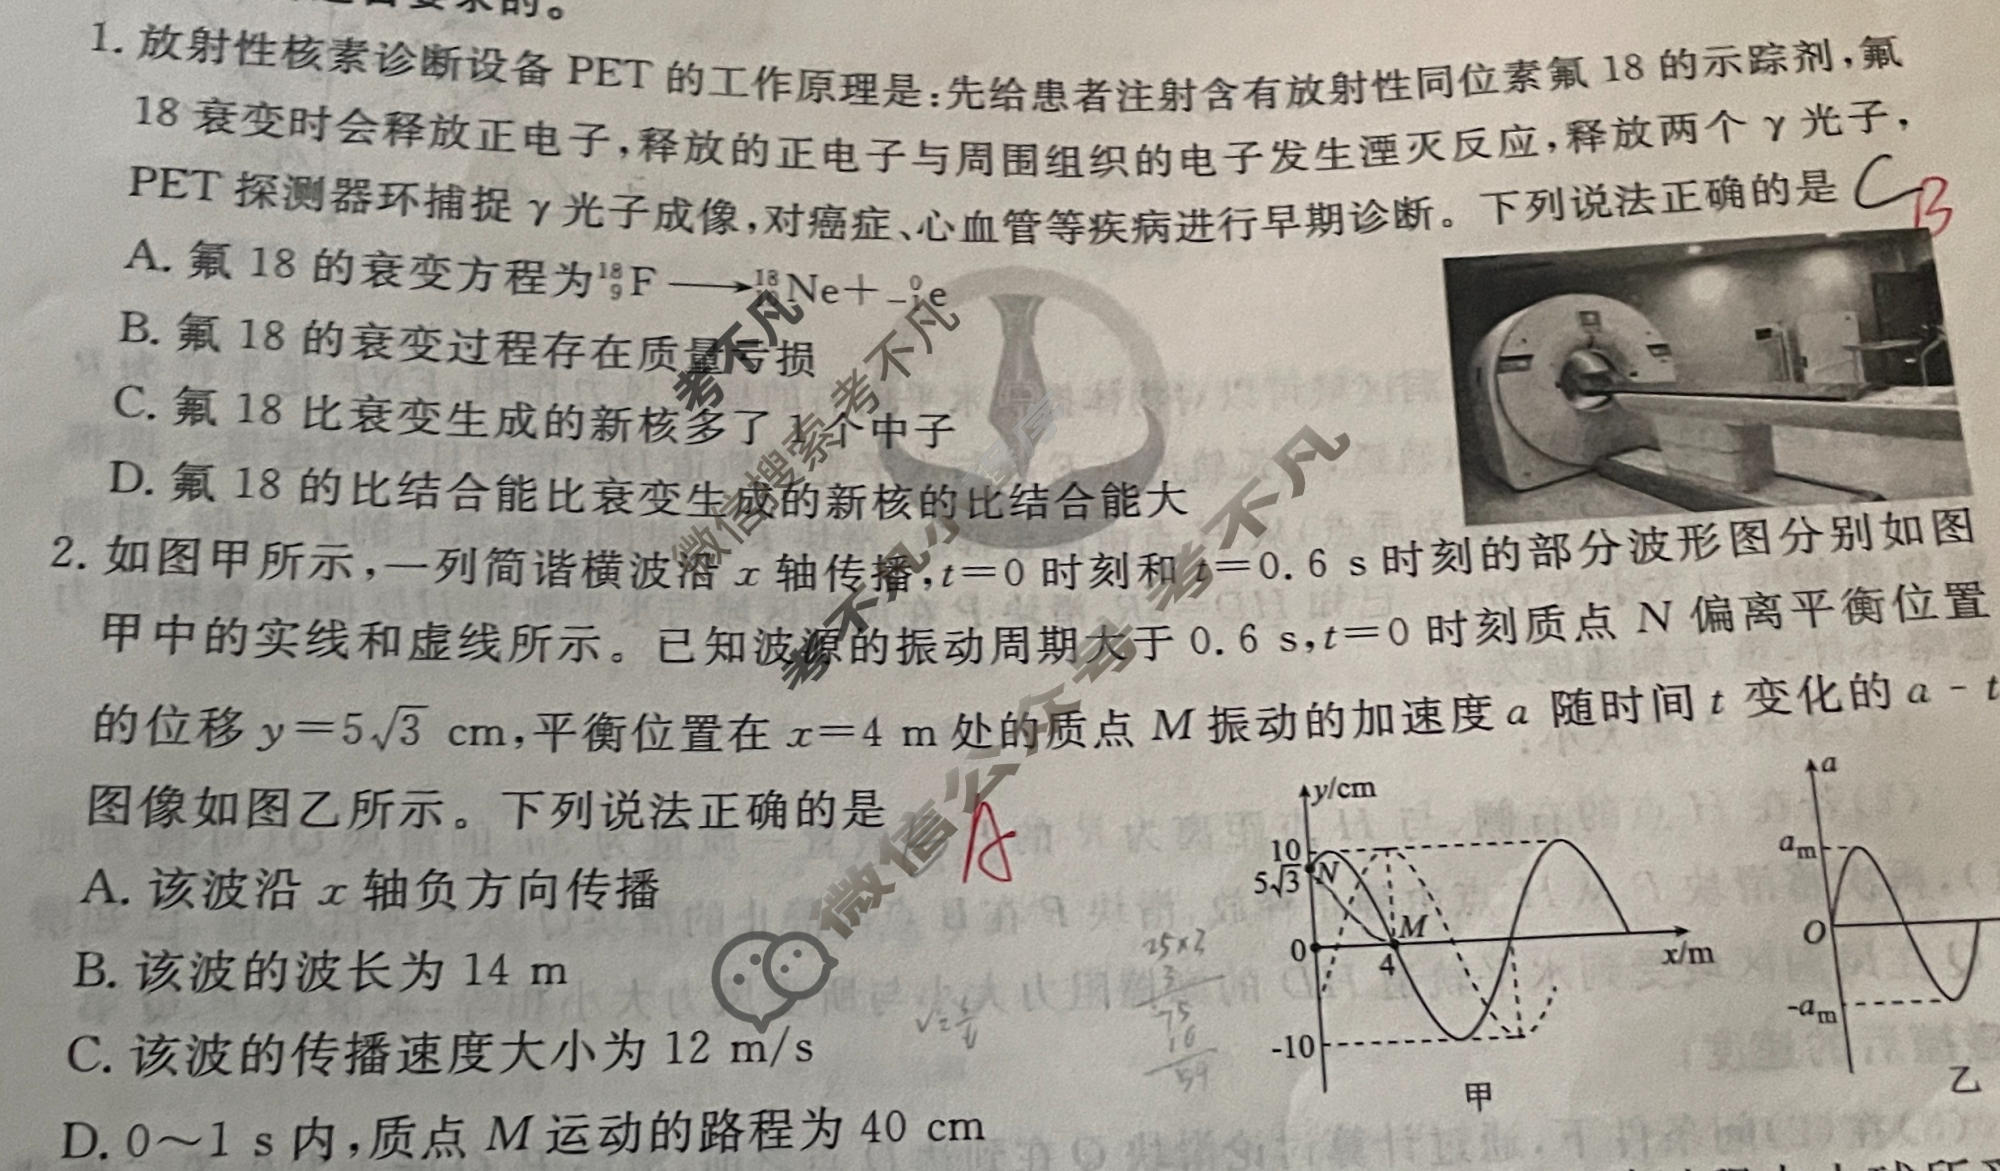 要求的。
1. 放射性核素诊断设备 PET 的工作原理是:先给患者注射含有放射性同位素氟 18 的示踪剂,氟
18 衰变时会释放正电子,释放的正电子与周围组织的电子发生湮灭反应,释放两个 γ 光子,
PET 探测器环捕捉 γ 光子成像,对癌症、心血管等疾病进行早期诊断。下列说法正确的是 C B
A. 氟 18 的衰变方程为 ¹⁸₉F ⟶ ¹⁸₁₀Ne + ⁰₋₁e
B. 氟 18 的衰变过程存在质量亏损
C. 氟 18 比衰变生成的新核多了 1 个中子
D. 氟 18 的比结合能比衰变生成的新核的比结合能大
2. 如图甲所示,一列简谐横波沿 x 轴传播,t=0 时刻和 t=0.6 s 时刻的部分波形图分别如图
甲中的实线和虚线所示。已知波源的振动周期大于 0.6 s,t=0 时刻质点 N 偏离平衡位置
的位移 y=5√3 cm,平衡位置在 x=4 m 处的质点 M 振动的加速度 a 随时间 t 变化的 a - t
图像如图乙所示。下列说法正确的是 A
A. 该波沿 x 轴负方向传播
B. 该波的波长为 14 m
C. 该波的传播速度大小为 12 m/s
D. 0～1 s 内,质点 M 运动的路程为 40 cm
y/cm
10
5√3
N
M
0
4
x/m
-10
甲
a
aₘ
O
-aₘ
乙
考不凡
微信搜索 考不凡
考不凡小
微信公众号 考不凡